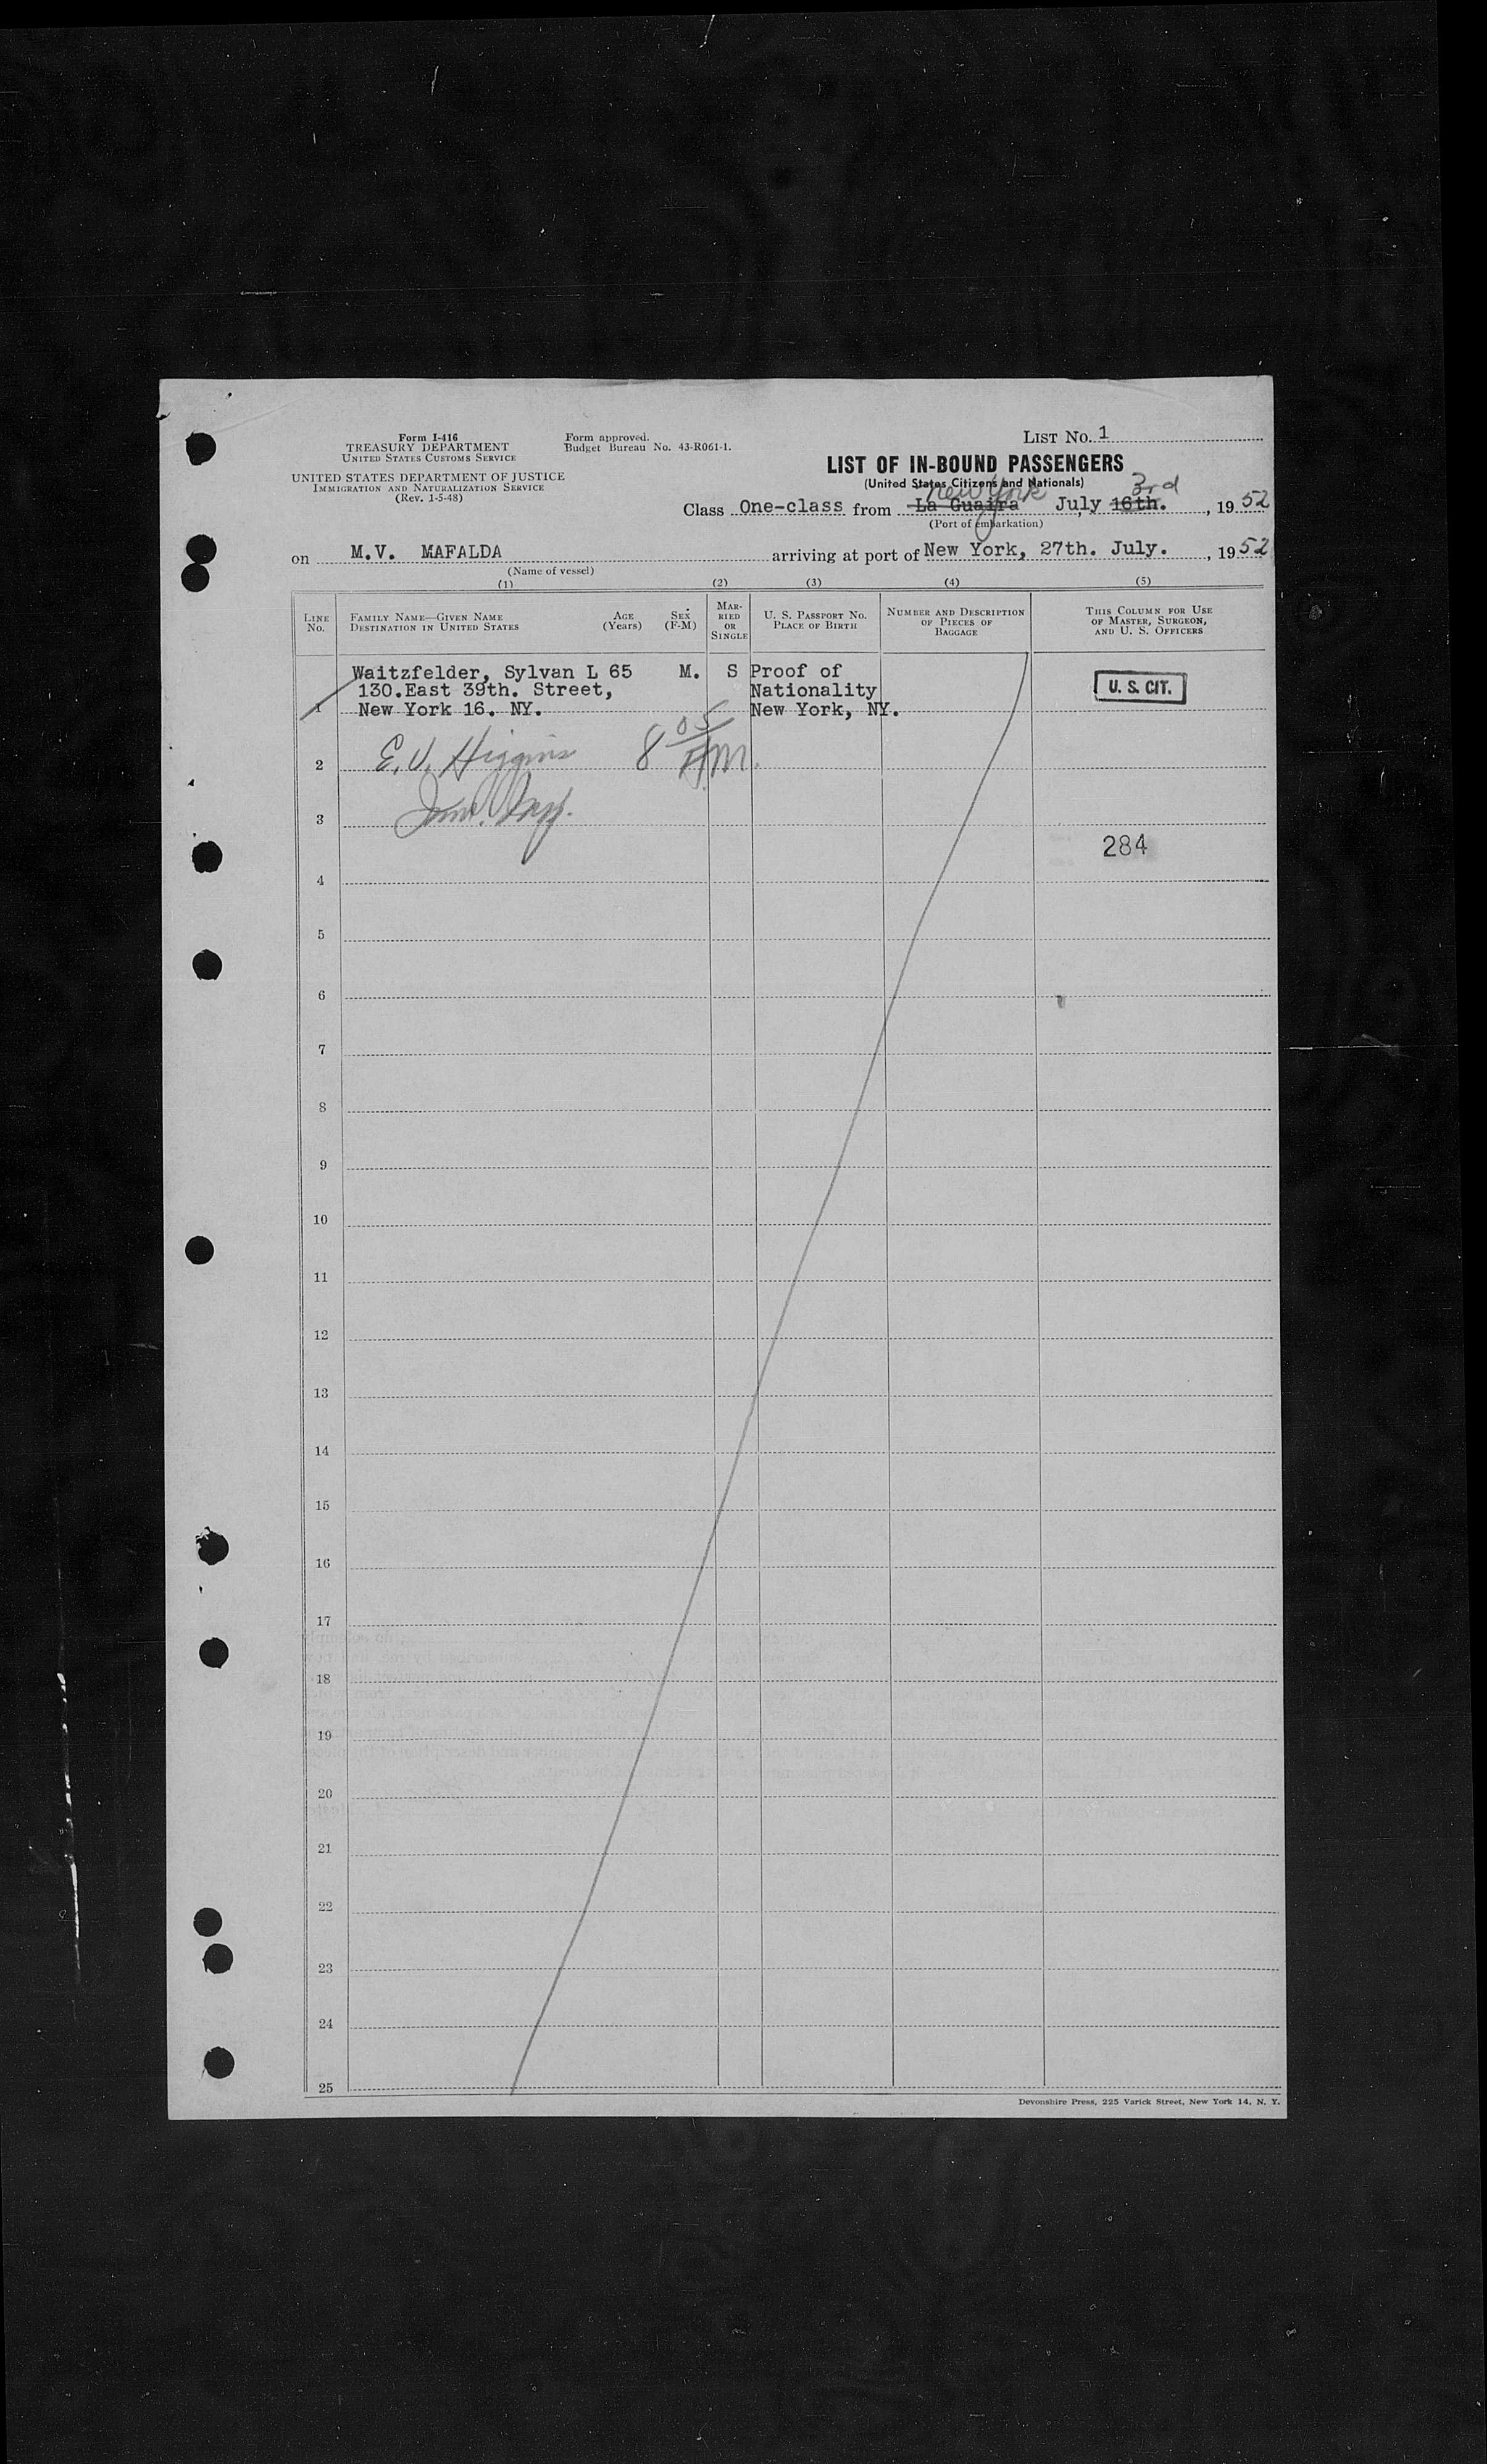 Form I-416
TREASURY DEPARTMENT
UNITED STATES CUSTOMS SERVICE
UNITED STATES DEPARTMENT OF JUSTICE
IMMIGRATION AND NATURALIZATION SERVICE
(Rev. 1-5-48)
Form approved.
Budget Bureau No. 43-R061-1.
LIST No. 1
LIST OF IN-BOUND PASSENGERS
(United States Citizens and Nationals)
New York 3rd
Class One-class from La Guaira July 16th. , 1952
(Port of embarkation)
on M.V. MAFALDA arriving at port of New York, 27th. July. , 1952
(Name of vessel)
(1) (2) (3) (4) (5)
LINE No.
FAMILY NAME—GIVEN NAME
DESTINATION IN UNITED STATES
AGE (Years)
SEX (F-M)
MARRIED OR SINGLE
U. S. PASSPORT No.
PLACE OF BIRTH
NUMBER AND DESCRIPTION
OF PIECES OF
BAGGAGE
THIS COLUMN FOR USE
OF MASTER, SURGEON,
AND U. S. OFFICERS
Waitzfelder, Sylvan L 65 M. S Proof of
130.East 39th. Street, Nationality U. S. CIT.
1 New York 16. NY. New York, NY.
2 E.V. Higgins 8 05 AM.
3 Imm. Insp.
284
4
5
6
7
8
9
10
11
12
13
14
15
16
17
18
19
20
21
22
23
24
25
Devonshire Press, 225 Varick Street, New York 14, N. Y.